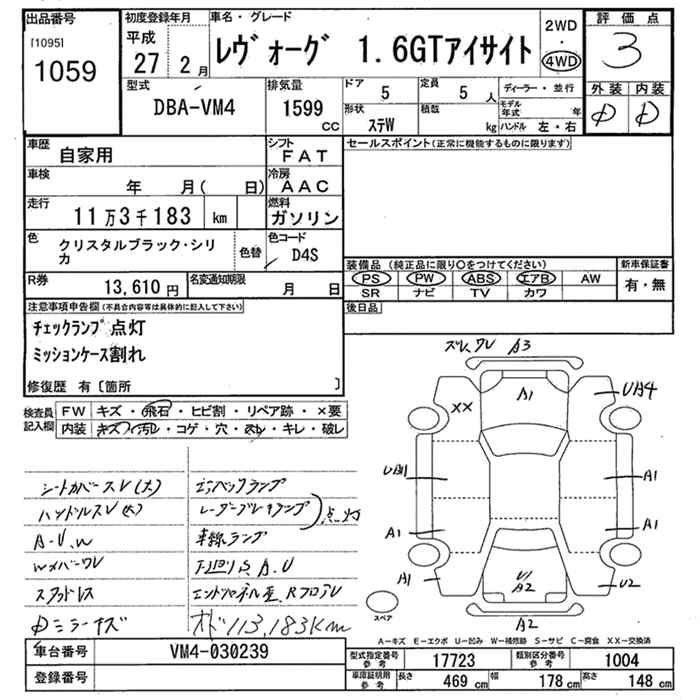 出品番号
[1095]
1059
初度登録年月
平成
27 2月
車名・グレード
レヴォーグ 1.6GTアイサイト
2WD
・
4WD
評価点
3
外装 内装
D D
型式
DBA-VM4
排気量
1599
CC
ドア
5
定員
5人
ディーラー・並行
モデル年式 年
形状
ステW
積数
kg
ハンドル 左・右
車歴
自家用
シフト
FAT
車検
年 月( 日)
冷房
AAC
走行
11万3千183 km
燃料
ガソリン
色
クリスタルブラック・シリカ
色替
色コード
D4S
R券
13,610円
名変通知期限
月 日
セールスポイント(正常に機能するものに限ります)
装備品(純正品に限り○をつけてください)
新車保証書
PS PW ABS エアB AW
有・無
SR ナビ TV カワ
後日品
注意事項申告欄(不具合内容等は具体的に記入して下さい)
チェックランプ点灯
ミッションケース割れ
修復歴 有〔箇所 〕
検査員記入欄
FW キズ・飛石・ヒビ割・リペア跡・×要
内装 キズ・汚れ・コゲ・穴・スレ・キレ・破レ
シートカバースレ(大)
ハンドルスレ(大)
A・U,W
Wメバーワレ
スアッドレス
エコバックランプ
レーダーブレーキランプ
点灯
車線ランプ
下廻りS,A,U
オド113,183Km
ズレ,ワレ A3
A1
XX
UA4
UB1
A1
A1
A1
A1
U/A2
U2
A2
スペア
A-キズ E-エクボ U-凹み W-補修跡 S-サビ C-腐食 XX-交換済
車台番号
VM4-030239
登録番号
型式指定番号 参考
17723
類別区分番号 参考
1004
車庫証明用 参考
長さ 469 cm
幅 178 cm
高さ 148 cm